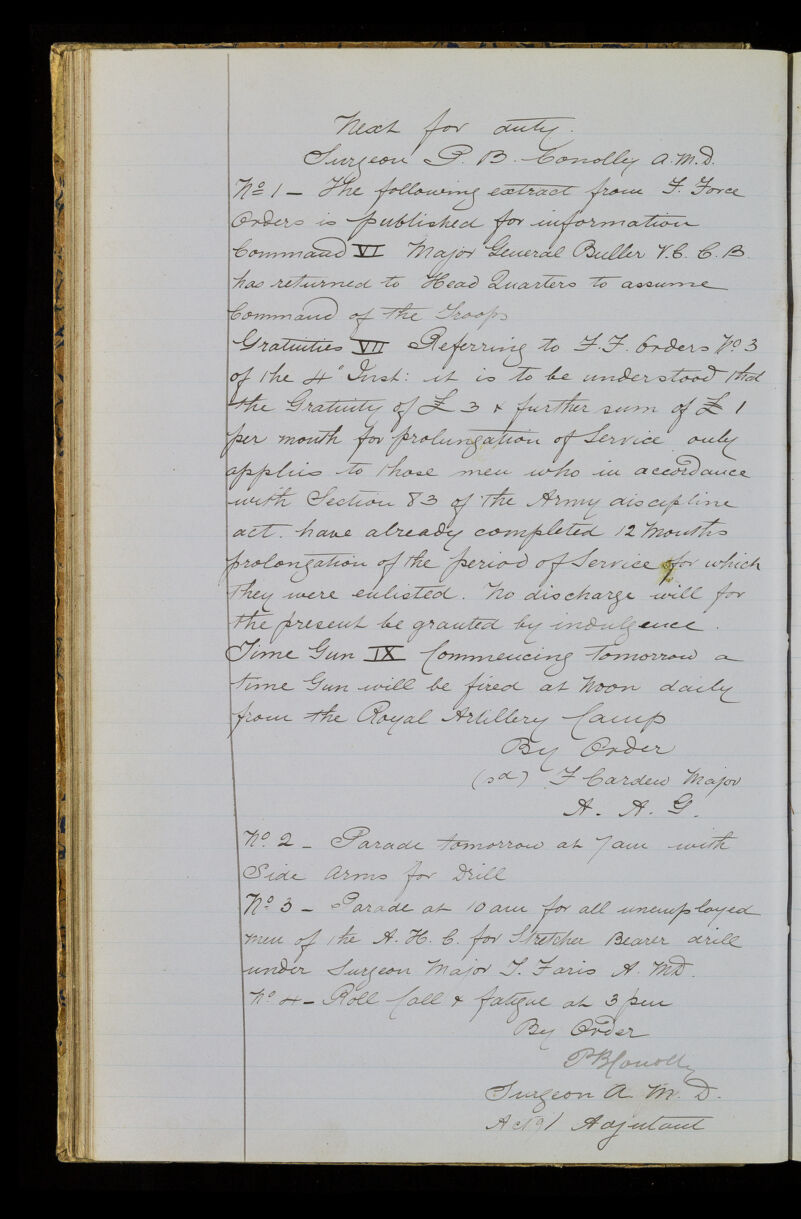 Next for duty.
Surgeon P. B. Conolly A.M.D.
No 1 — The following extract from F. Force
Orders is published for information
Command VI Major General Buller V.C. C.B
has returned to Head Quarters to assume
Command of the Troops
Gratuities VII Referring to F.F. Orders No 3
of the 4" Inst: it is to be understood that
the Gratuity of £ 3 & further sum of £ 1
per month for prolungation of Service only
applies to those men who in accordance
with Section 83 of the Army discipline
act. have already completed 12 Months
prolongation of the period of Service for which
they were enlisted. No discharge will for
the present be granted by indulgence.
Time Gun IX Commencing tomorrow a
time Gun will be fired at Noon daily
from the Royal Artillery Camp
By Order
(sd) F Carden Major
A. A. G.
No. 2 – Parade tomorrow at 7 am with
Side Arms for Drill
No 3 – Parade at 10 am for all unemployed
men of the A. H. C. for Stretcher Bearer drill
under Surgeon Major T. Faris A. MD.
No 4 – Roll Call & fatigue at 3 pm
By Order
PBConolly
Surgeon A. M. D.
Act'g / Adjutant